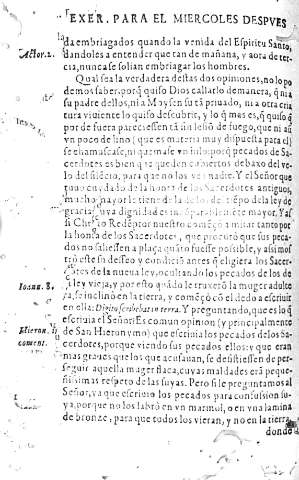 EXER. PARA EL MIERCOLES DESPVES
da embriagados quando la venida del Espiritu Santo,
Actor. 2.
dandoles a entender que tan de mañana, y aora de ter
cia, nunca se solian embriagar los hombres.
Qual sea la verdadera destas dos opiniones, no lo po
demos saber, porq̃ quiso Dios callarlo demanera, q̃ ni a
su padre dellos, ni a Moysen su tã priuado, ni a otra cria
tura viuiente lo quiso descubrir, y lo q̃ mas es, q̃ quiso q̃
por de fuera pareciessen tã sin lesiõ de fuego, que ni aũ
vn poco de lino (que es materia muy dispuesta para el)
se chamuscase, ni quemase vn hilo: porq̃ pecados de Sa
cerdotes es bien q̃ se queden cubiertos debaxo del ve-
lo del silẽcio, para que no los vea nadie. Y el Señor que
tuuo cuydado de la honra de los Sacerdotes antiguos,
mucho mayor le tiene de la de los del tiẽpo de la ley de
gracia, cuya dignidad es incõparablemẽte mayor. Y assi
Christo Redẽptor nuestro començó a mirar tanto por
la honra de los Sacerdotes, que procurò que sus peca-
dos no saliessen a plaça quãto fuesse possible, y assi mos
trò este su desseo y condiciõ antes q̃ eligiera los Sacer-
dotes de la nueva ley, ocultando los pecados de los de
Ioann. 8.
la ley vieja, y por esto quãdo le truxerõ la muger adulte
ra, se inclinò en la tierra, y començò cõ el dedo a escriuir
en ella: Digito scribebat in terra. Y preguntando, que es lo q̃
escriuia el Señor? Es comun opinion (y principalmente
Hieron. ĩ
coment.
de San Hieronymo) que escriuia los pecados de los Sa-
cerdotes, porque viendo sus pecados ellos: y que eran
mas graues que los que acusauan, se desistiessen de per-
seguir aquella muger flaca, cuyas maldades erã peque-
ñissimas respeto de las suyas. Pero si le preguntamos al
Señor, ya que escriuio los pecados para confusion su-
ya, porque no los labrò en vn marmol, o en vna lamina
de bronze, para que todos los vieran, y no en la tierra,
donde